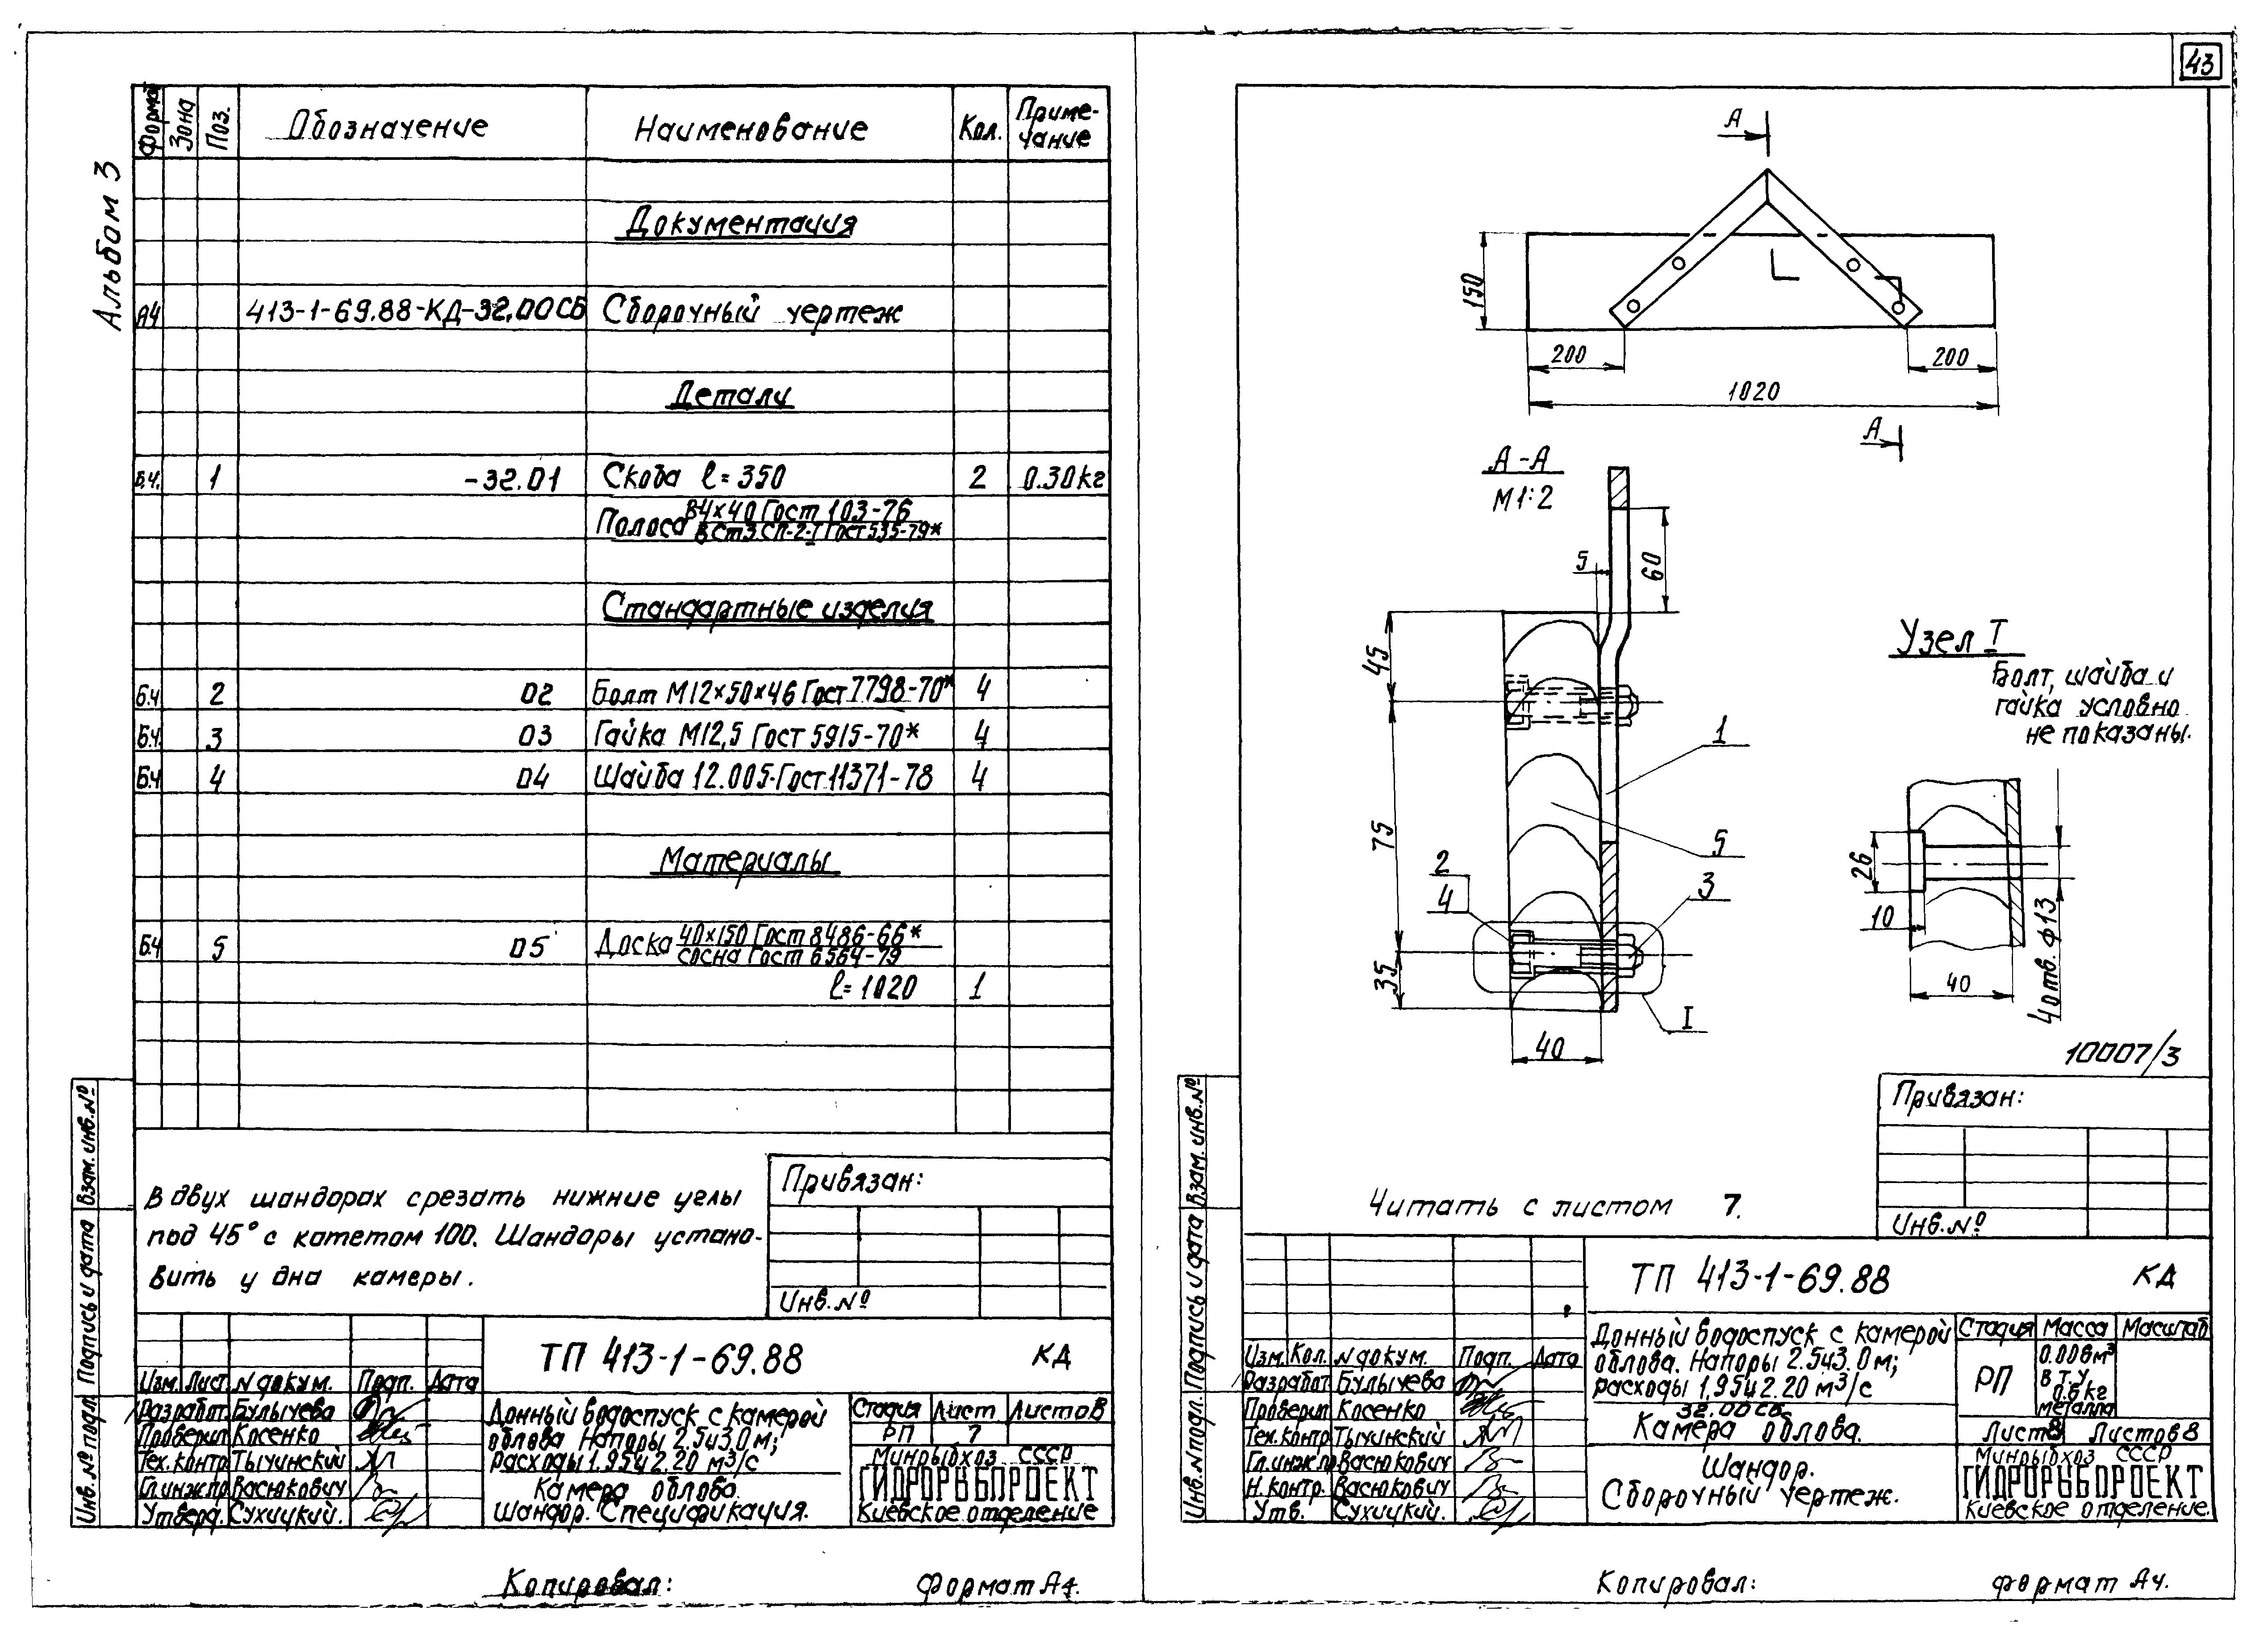 43
Альбом 3
Формат Зона Поз. Обозначение Наименование Кол. Приме-
чание
Документация
А4 413-1-69.88-КД-32.00СБ Сборочный чертеж
Детали
Б.ч. 1 -32.01 Скоба ℓ=350 2 0.30кг
Полоса В4×40 Гост 103-76
ВСт3 сп-2-I Гост 535-79*
Стандартные изделия
Б.ч 2 02 Болт М12×50×46 Гост 7798-70* 4
Б.ч. 3 03 Гайка М12,5 Гост 5915-70* 4
Б.ч 4 04 Шайба 12.005.Гост 11371-78 4
Материалы
Б.ч 5 05 Доска 40×150 Гост 8486-66*
сосна Гост 6564-79
ℓ=1020 1
В двух шандорах срезать нижние углы
под 45° с катетом 100. Шандоры устано-
вить у дна камеры.
Привязан:
Инв.№
Взам. инв.№
Подпись и дата
Инв.№ подл.
ТП 413-1-69.88 КД
Изм. Лист N докум. Подп. Дата
Разработ. Булычева
Проверил Косенко
Тех.контр. Тычинский
Гл.инж.пр. Васюкович
Утверд. Сухицкий.
Донный водоспуск с камерой
облова Напоры 2.5и3.0м;
расходы 1.95и2.20 м³/с
Камера облова.
Шандор. Спецификация.
Стадия Лист Листов
РП 7
Минрыбхоз СССР
ГИДРОРЫБПРОЕКТ
Киевское отделение
Копировал:
Формат А4.
А
150
200 200
1020
А
А-А
М1:2
5
60
45
75
35
40
1
5
2
4
3
I
Узел I
Болт, шайба и
гайка условно
не показаны.
26
10
40
4отв. ф13
10007/3
Привязан:
Инв.№
Читать с листом 7.
Взам. инв.№
Подпись и дата
Инв.№ подл.
ТП 413-1-69.88 КД
Изм. Кол. N докум. Подп. Дата
Разработ. Булычева
Проверил Косенко
Тех.контр Тычинский
Гл.инж.пр Васюкович
Н.контр. Васюкович
Утв. Сухицкий.
Донный водоспуск с камерой
облова. Напоры 2.5и3.0м;
расходы 1.95и2.20 м³/с
32.00СБ
Камера облова.
Шандор.
Сборочный чертеж.
Стадия Масса Масштаб
РП 0.006м³
в т.ч
0.6кг
металла
Лист8 Листов8
Минрыбхоз СССР
ГИДРОРЫБПРОЕКТ
Киевское отделение.
Копировал:
формат А4.